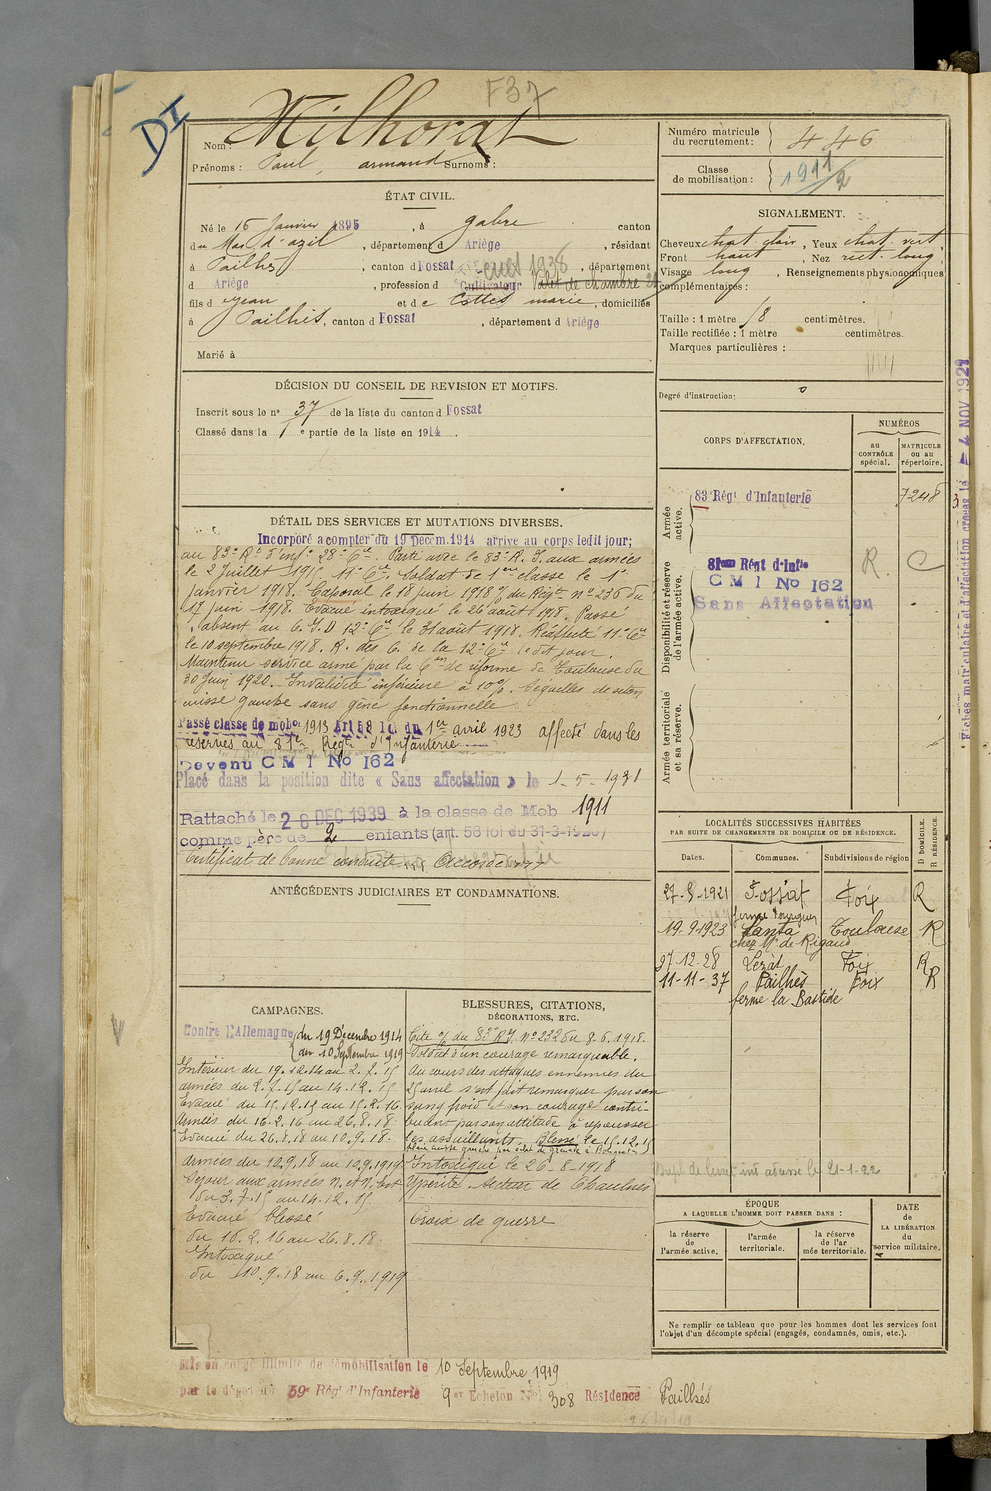 F37
DI
Nom : Milhorat
Prénoms : Paul, armand Surnoms :
ÉTAT CIVIL.
Né le 15 Janvier 1895, à gabre canton
du Mas d'azil, département d Ariège, résidant
à Pailhès, canton d Fossat, département
d Ariège, profession d Cultivateur Valet de chambre
cult 1938
fils d Jean et de Cottes marie, domiciliés
à Pailhès, canton d Fossat, département d Ariège
Marié à
DÉCISION DU CONSEIL DE REVISION ET MOTIFS.
Inscrit sous le n° 37 de la liste du canton d Fossat
Classé dans la 1e partie de la liste en 1914.
DÉTAIL DES SERVICES ET MUTATIONS DIVERSES.
Incorporé a compter du 19 Decem. 1914 arrive au corps ledit jour;
au 83e Rt d'Infie 28e Cie. Parti avec le 83e R. I. aux armées
le 2 Juillet 1915. 11e Cie. Soldat de 1ère classe le 1er
Janvier 1918. Caporal le 18 juin 1918 du Régt n° 236 du
17 juin 1918. Evacué intoxiqué le 26 août 1918. Passé
absent au C.I.D 12e Cie le 31 août 1918. Réaffecté 11e Cie
le 10 septembre 1918. R. des C. de la 12e Cie le dit jour.
Maintenu service armé par la Con de réforme de Toulouse du
30 Juin 1920. Invalidité inférieure à 10%. Séquelles de
cuisse gauche sans gêne fonctionnelle
Passé classe de mobon 1913 Art 58 loi du 1er avril 1923 affecté dans les
réserves au 81e Régt d'Infanterie
Devenu C M I No 162
Placé dans la position dite « Sans affectation » le 1-5-1931
Rattaché le 28 DEC 1939 à la classe de Mob 1911
comme père de 2 enfants (art. 58 loi du 31-3-1928)
Certificat de bonne conduite Accordé
ANTÉCÉDENTS JUDICIAIRES ET CONDAMNATIONS.
CAMPAGNES.
Contre l'Allemagne du 19 Décembre 1914
au 10 Septembre 1919
Intérieur du 19.12.14 au 2.7.15
armées du 2.7.15 au 14.12.15
Evacué du 15.12.15 au 15.2.16
Armées du 16.2.16 au 26.8.18
Evacué du 26.8.18 au 10.9.18.
Armées du 10.9.18 au 10.9.1919
Séjour aux armées
du 3.7.15 au 14.12.15
Evacué blessé
du 10.2.16 au 26.8.18.
Intoxiqué
du 10.9.18 au 6.9.1919
BLESSURES, CITATIONS,
DÉCORATIONS, ETC.
Cité o/ du 83e RI n° 232 du 8.6.1918.
Soldat d'un courage remarquable.
Au cours des attaques ennemies du
25 avril s'est fait remarquer par son
sang froid et son courage contri-
buant par son attitude à repousser
les assaillants. Blessé le 15.12.15
Intoxiqué le 26-8-1918
Ypérite. Secteur de Chaulnes
Croix de guerre
Mis en congé illimité de démobilisation le 10 Septembre 1919
par le dépôt du 59e Régt d'Infanterie 9er Echelon No 308 Résidence Pailhès
Numéro matricule
du recrutement : 446
Classe
de mobilisation : 1911/2
SIGNALEMENT.
Cheveux chat. clair, Yeux chat. vert
Front haut, Nez rect. long
Visage long, Renseignements physionomiques
complémentaires :
Taille : 1 mètre 78 centimètres.
Taille rectifiée : 1 mètre centimètres.
Marques particulières :
Degré d'instruction :
CORPS D'AFFECTATION.
NUMÉROS
au
CONTRÔLE
spécial.
MATRICULE
ou au
répertoire.
Armée
active.
83e Régt d'Infanterie
7248
Disponibilité et réserve
de l'armée active.
81em Régt d'Infie R C
C M I No 162
Sans Affectation
Armée territoriale
et sa réserve.
Fiches matriculaire et d'affectation créées le 4 NOV 1921
LOCALITÉS SUCCESSIVES HABITÉES
PAR SUITE DE CHANGEMENTS DE DOMICILE OU DE RÉSIDENCE.
Dates. Communes. Subdivisions de région
D DOMICILE.
R RÉSIDENCE.
27-8-1921 Fossat Foix R
19.9.1923 Lanta Toulouse R
chez Mr de Rigaud
27-12-28 Lezat Foix R
11-11-37 Pailhès Foix R
ferme la Bastide
ÉPOQUE
A LAQUELLE L'HOMME DOIT PASSER DANS :
la réserve
de
l'armée active.
l'armée
territoriale.
la réserve
de l'ar
mée territoriale.
DATE
de
LA LIBÉRATION
du
service militaire.
Ne remplir ce tableau que pour les hommes dont les services font
l'objet d'un décompte spécial (engagés, condamnés, omis, etc.).